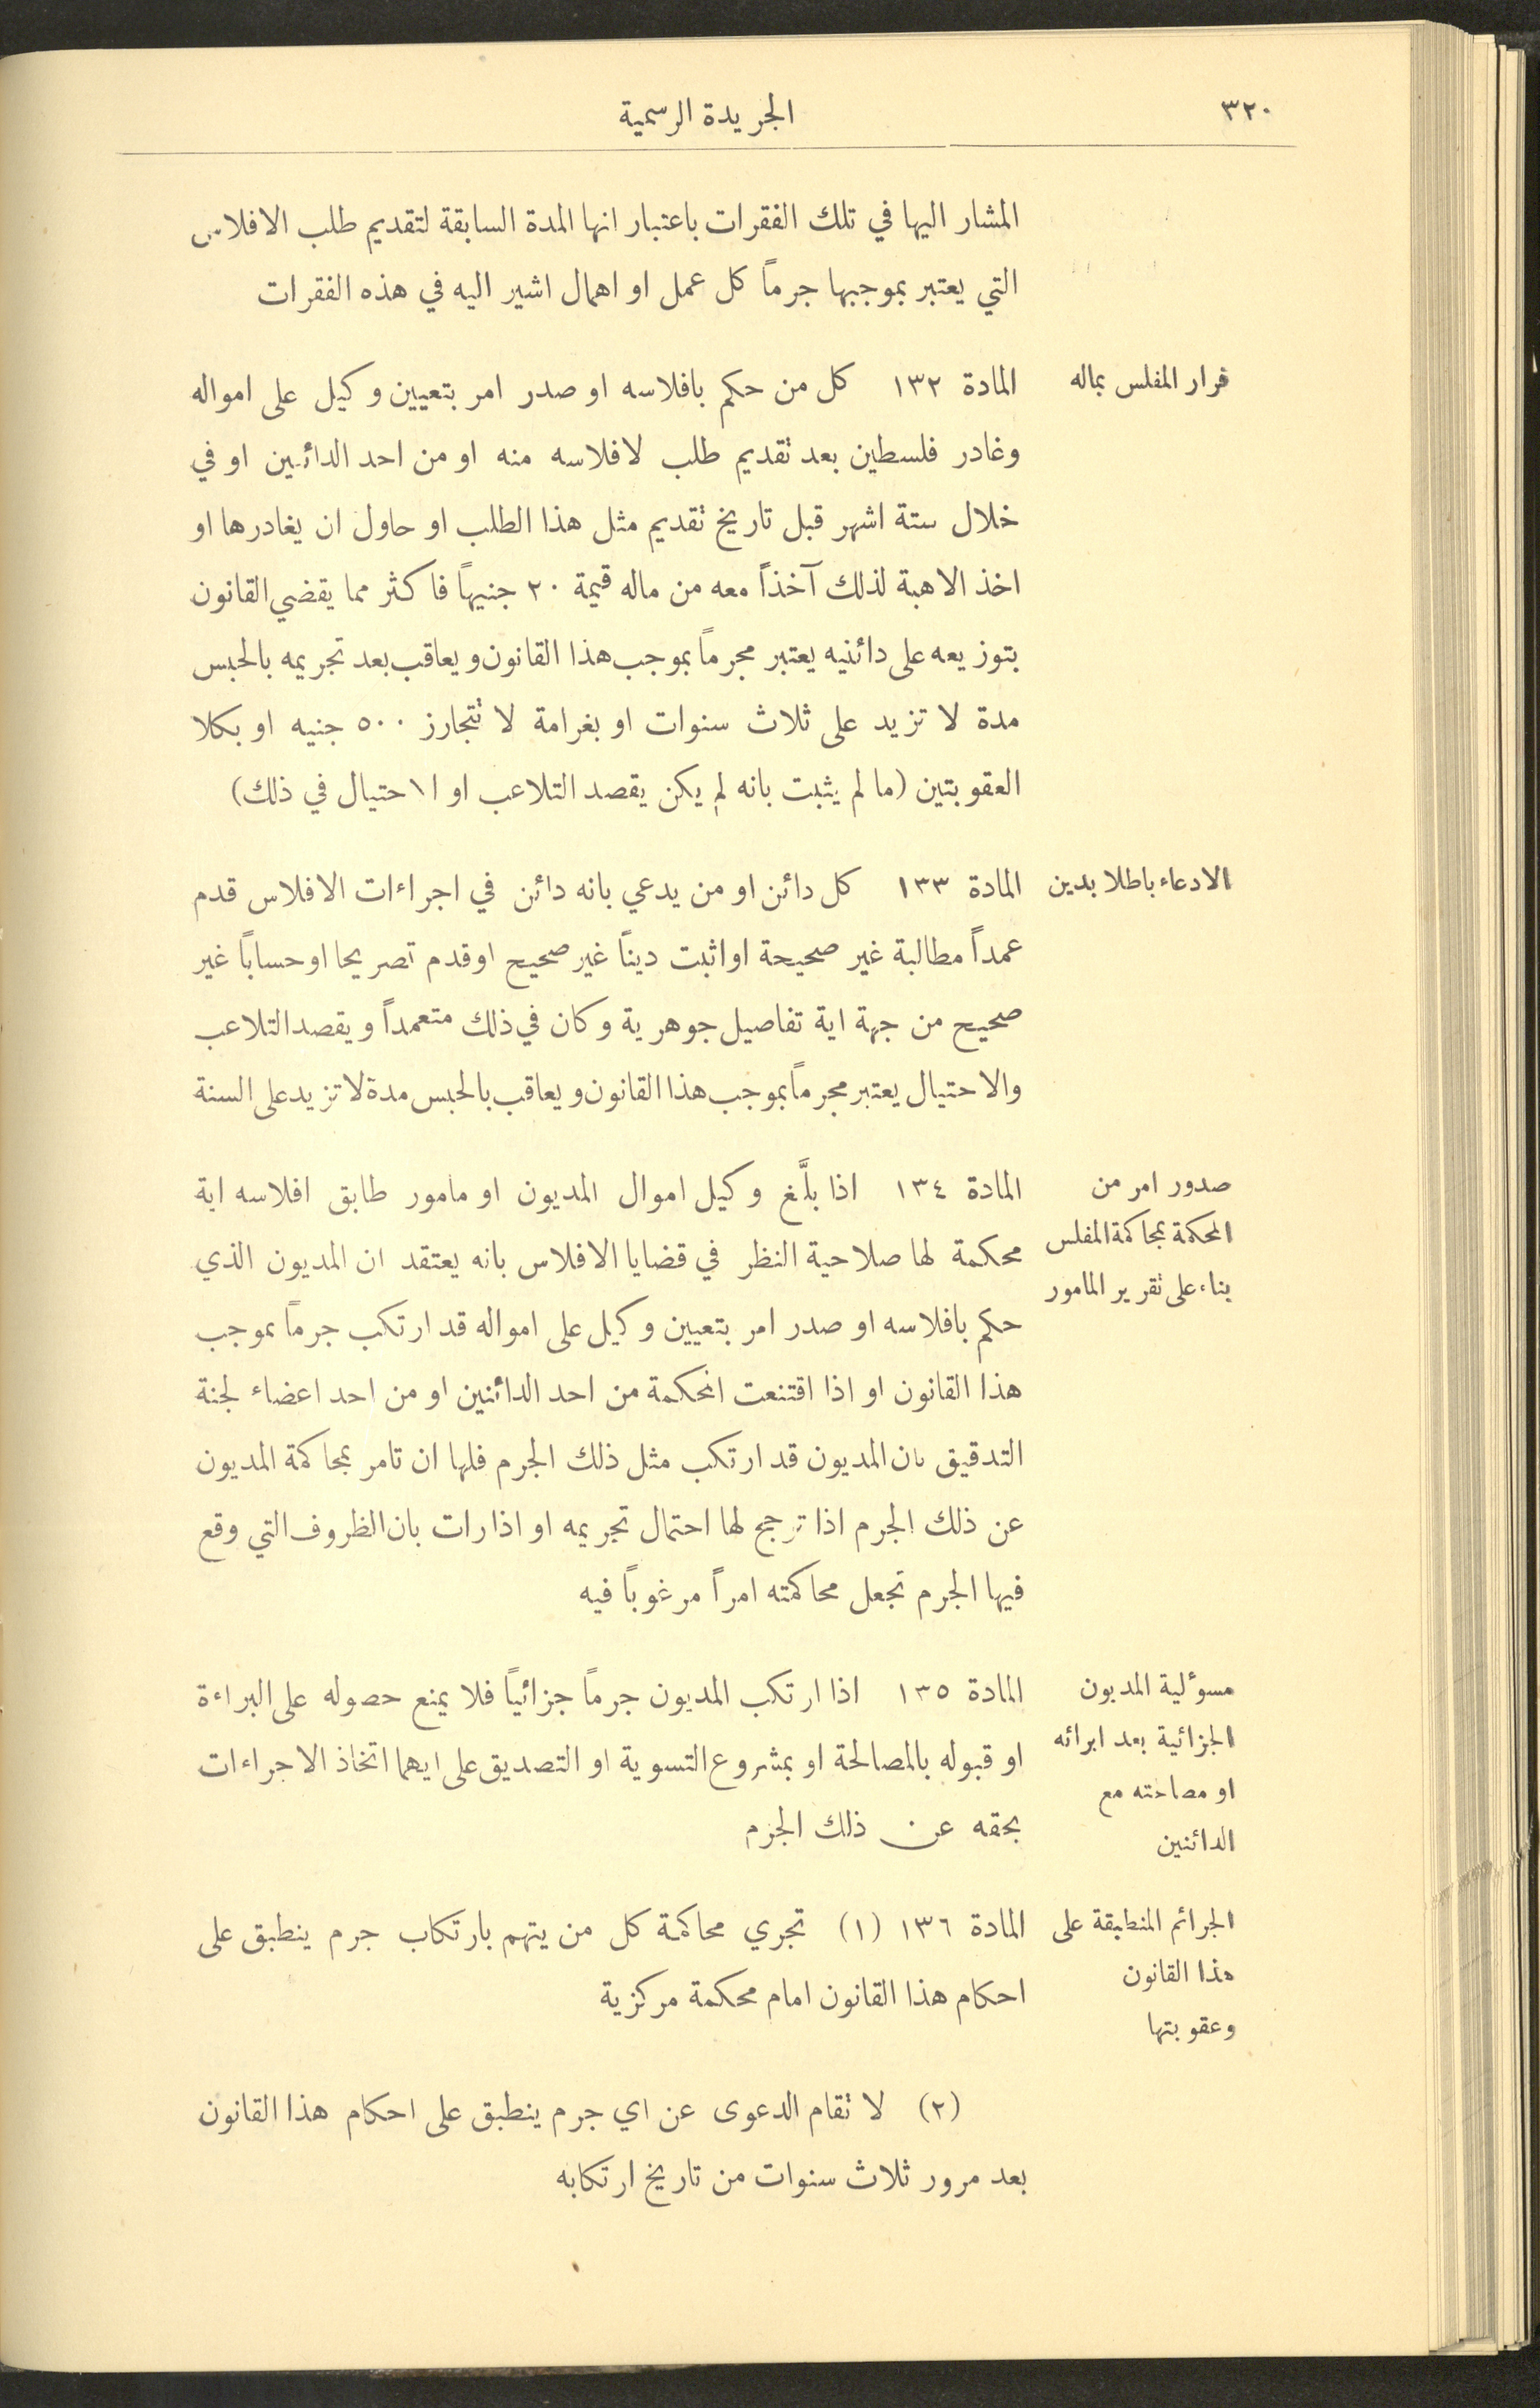 ٣٢٠
الجريدة الرسمية
المشار اليها في تلك الفقرات باعتبار انها المدة السابقة لتقديم طلب الافلاس
التي يعتبر بموجبها جرماً كل عمل او اهمال اشير اليه في هذه الفقرات
فرار المفلس بماله
المادة ١٣٢ كل من حكم بافلاسه او صدر امر بتعيين وكيل على امواله
وغادر فلسطين بعد تقديم طلب لافلاسه منه او من احد الدائنين او في
خلال ستة اشهر قبل تاريخ تقديم مثل هذا الطلب او حاول ان يغادرها او
اخذ الاهبة لذلك آخذاً معه من ماله قيمة ٢٠ جنيهاً فاكثر مما يقضي القانون
بتوزيعه على دائنيه يعتبر مجرماً بموجب هذا القانون ويعاقب بعد تجريمه بالحبس
مدة لا تزيد على ثلاث سنوات او بغرامة لا تتجارز ٥٠٠ جنيه او بكلا
العقوبتين (ما لم يثبت بانه لم يكن يقصد التلاعب او الاحتيال في ذلك)
الادعاء باطلا بدين
المادة ١٣٣ كل دائن او من يدعي بانه دائن في اجراءات الافلاس قدم
عمداً مطالبة غير صحيحة او اثبت ديناً غير صحيح او قدم تصريحا او حساباً غير
صحيح من جهة اية تفاصيل جوهرية وكان في ذلك متعمداً ويقصد التلاعب
والاحتيال يعتبر مجرماً بموجب هذا القانون ويعاقب بالحبس مدة لا تزيد على السنة
صدور امر من
المحكمة بمحاكمة المفلس
بناء على تقرير المامور
المادة ١٣٤ اذا بلَّغ وكيل اموال المديون او مامور طابق افلاسه اية
محكمة لها صلاحية النظر في قضايا الافلاس بانه يعتقد ان المديون الذي
حكم بافلاسه او صدر امر بتعيين وكيل على امواله قد ارتكب جرماً بموجب
هذا القانون او اذا اقتنعت المحكمة من احد الدائنين او من احد اعضاء لجنة
التدقيق بان المديون قد ارتكب مثل ذلك الجرم فلها ان تامر بمحاكمة المديون
عن ذلك الجرم اذا ترجح لها احتمال تجريمه او اذا رات بان الظروف التي وقع
فيها الجرم تجعل محاكمته امراً مرغوباً فيه
مسوٴلية المديون
الجزائية بعد ابرائه
او مصالحته مع
الدائنين
المادة ١٣٥ اذا ارتكب المديون جرماً جزائياً فلا يمنع حصوله على البراءة
او قبوله بالمصالحة او بمشروع التسوية او التصديق على ايهما اتخاذ الاجراءات
بحقه عن ذلك الجرم
الجرائم المنطبقة على
هذا القانون
وعقوبتها
المادة ١٣٦ (١) تجري محاكمة كل من يتهم بارتكاب جرم ينطبق على
احكام هذا القانون امام محكمة مركزية
(٢) لا تقام الدعوى عن اي جرم ينطبق على احكام هذا القانون
بعد مرور ثلاث سنوات من تاريخ ارتكابه